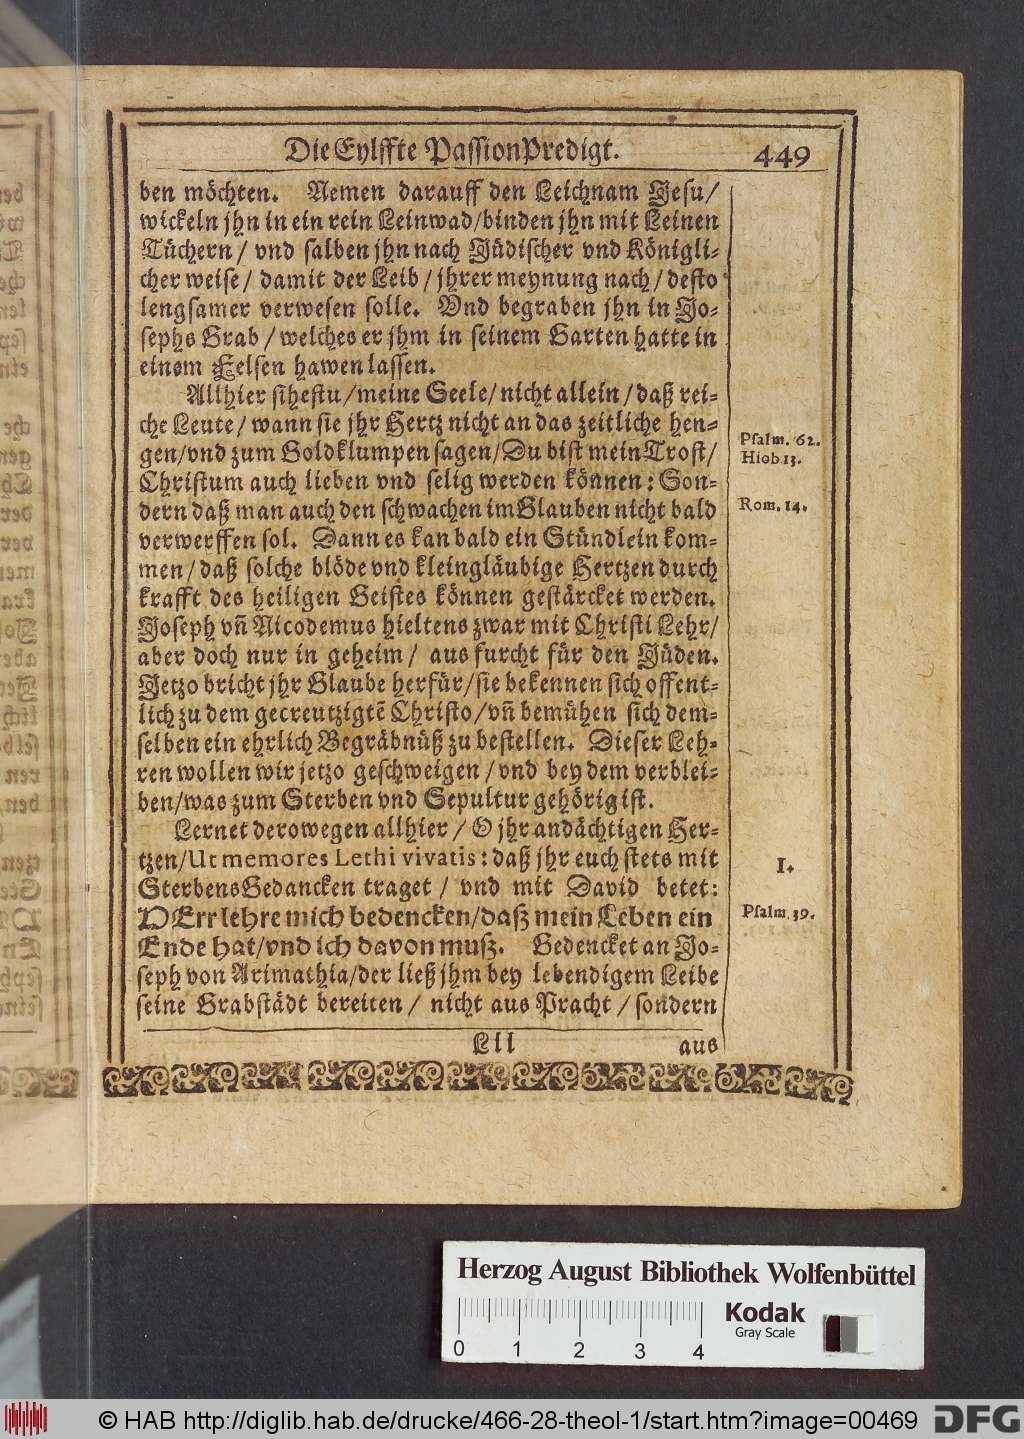 Die Eylffte PassionPredigt. 449
ben möchten. Nemen darauff den Leichnam Jesu/
wickeln jhn in ein rein Leinwad/binden jhn mit Leinen
Tüchern/ vnd salben jhn nach Jüdischer vnd Königli-
cher weise/ damit der Leib/ jhrer meynung nach/ desto
lengsamer verwesen solle. Vnd begraben jhn in Jo-
sephs Grab/ welches er jhm in seinem Garten hatte in
einem Felsen hawen lassen.
Allhier sihestu/meine Seele/ nicht allein/ daß rei-
che Leute/ wann sie jhr Hertz nicht an das zeitliche hen-
gen/vnd zum Goldklumpen sagen/Du bist mein Trost/
Psalm. 62.
Hiob 13.
Christum auch lieben vnd selig werden können: Son-
dern daß man auch den schwachen im Glauben nicht bald
Rom. 14.
verwerffen sol. Dann es kan bald ein Stündlein kom-
men/ daß solche blöde vnd kleingläubige Hertzen durch
krafft des heiligen Geistes können gestärcket werden.
Joseph vñ Nicodemus hieltens zwar mit Christi Lehr/
aber doch nur in geheim/ aus furcht für den Jüden.
Jetzo bricht jhr Glaube herfür/sie bekennen sich offent-
lich zu dem gecreutzigtē Christo/vñ bemühen sich dem-
selben ein ehrlich Begräbnüß zu bestellen. Dieser Leh-
ren wollen wir jetzo geschweigen/vnd bey dem verblei-
ben/was zum Sterben vnd Sepultur gehörig ist.
Lernet derowegen allhier/ O jhr andächtigen Her-
tzen/Ut memores Lethi vivatis: daß jhr euch stets mit
1.
SterbensGedancken traget/ vnd mit David betet:
HErr lehre mich bedencken/daß mein Leben ein
Psalm. 39.
Ende hat/vnd ich davon muß. Gedencket an Jo-
seph von Arimathia/der ließ jhm bey lebendigem Leibe
seine Grabstädt bereiten/ nicht aus Pracht/ sondern
Lll aus
Herzog August Bibliothek Wolfenbüttel
0 1 2 3 4
Kodak
Gray Scale
© HAB http://diglib.hab.de/drucke/466-28-theol-1/start.htm?image=00469
DFG